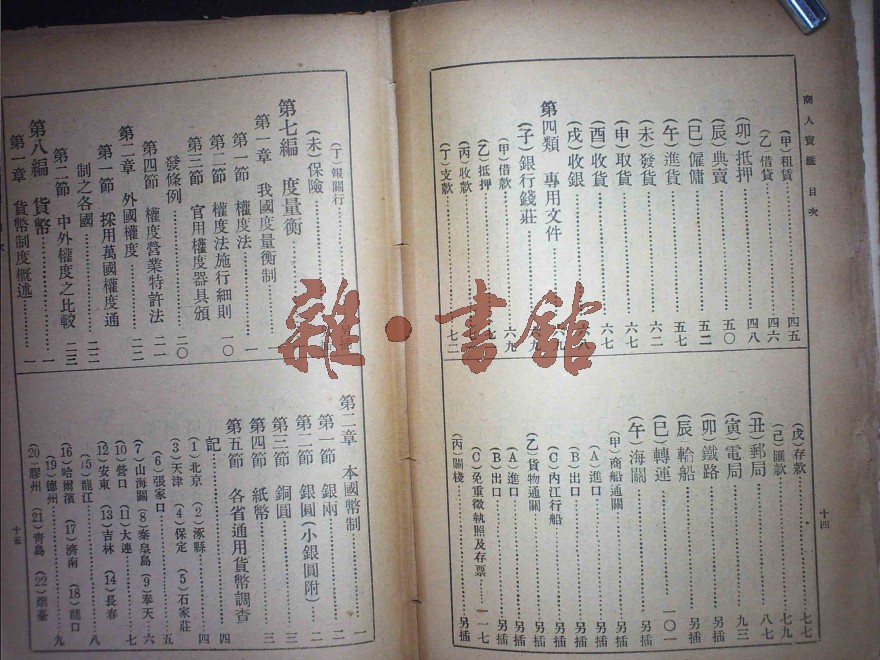 商人寶鑑 目次
(甲)租賃……四五
(乙)借貸……四六
(卯)抵押……四八
(辰)典賣……五〇
(巳)僱傭……五二
(午)進貨……五七
(未)發貨……六二
(申)取貨……六七
(酉)收貨……六七
(戌)收銀……
第四類 專用文件……六九
(子)銀行錢莊……六九
(甲)借款……六九
(乙)抵押……
(丙)收款……
(丁)支款……七二
(戊)存款……七七
(己)匯款……七九
(丑)郵局……八七
(寅)電局……九三
(卯)鐵路……另插
(辰)輪船……另插
(巳)轉運……一〇一
(午)海關……另插
(甲)商船通關……另插
(A)進口……另插
(B)出口……另插
(C)內江行船……另插
(乙)貨物通關……另插
(A)進口……另插
(B)出口……另插
(C)免重徵執照及存票……一一七
(丙)關棧……另插
十四
(丁)報關行……另插
(未)保險……
第七編 度量衡
第一章 我國度量衡制……一
第一節 權度法……一
第二節 權度法施行細則……一〇
第三節 官用權度器具頒
發條例……二〇
第四節 權度營業特許法……二一
第二章 外國權度……二二
第一節 採用萬國權度通
制之各國……二二
第二節 中外權度之比較……二三
第八編 貨幣……一
第一章 貨幣制度概述……一
第二章 本國幣制……一
第一節 銀兩……一
第二節 銀圓(小銀圓附)……二
第三節 銅圓……三
第四節 紙幣……三
第五節 各省通用貨幣調查
記……四
(1)北京 (2)涿縣……四
(3)天津 (4)保定 (5)石家莊
(6)張家口……五
(7)山海關 (8)秦皇島 (9)奉天……六
(10)營口 (11)大連……七
(12)安東 (13)吉林 (14)長春
(15)龍江……八
(16)哈爾濱 (17)濟南 (18)龍口
(19)德州……九
(20)膠州 (21)靑島 (22)烟臺
十五
雜·書館